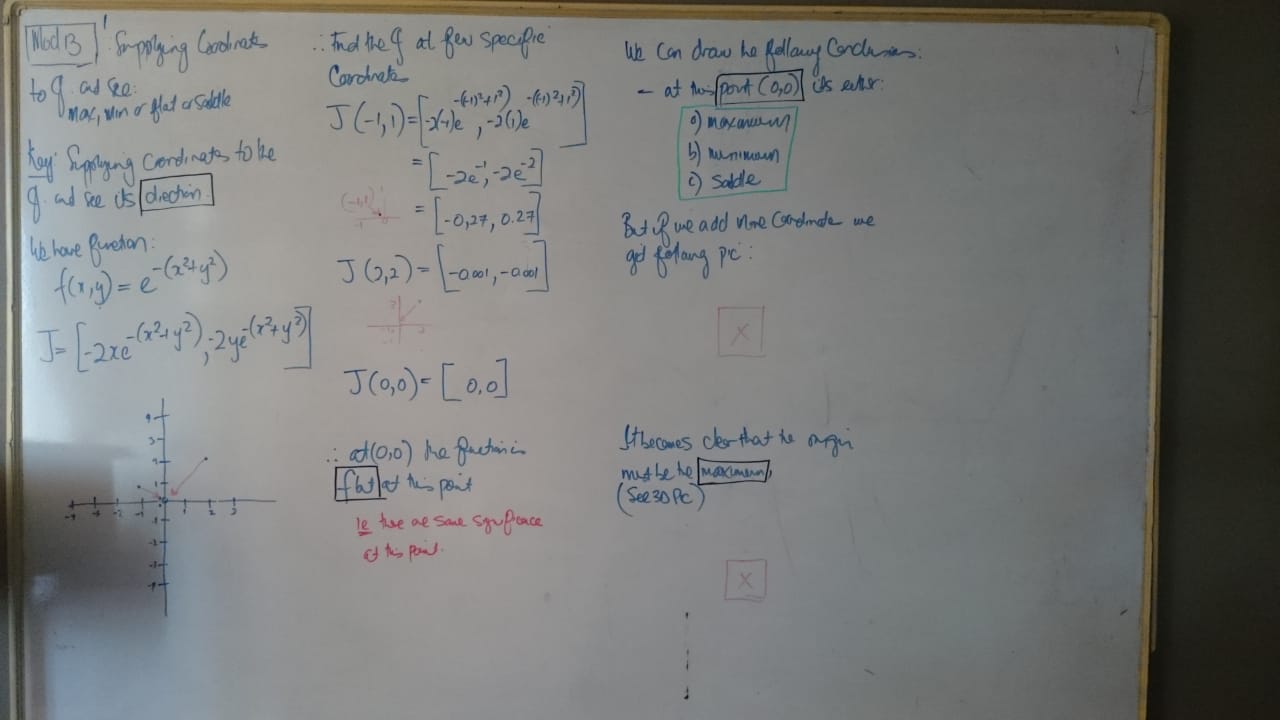 Mod 13 ! Supplying Coordinates
to J. and see:
max, min or flat or saddle
Key: Supplying Coordinates to the
J. and see its direction.
We have function:
f(x,y) = e^-(x²+y²)
J = [-2xe^-(x²+y²), -2ye^-(x²+y²)]
∴ Find the J at few specific
Coordinates
J(-1,1) = [-2(-1)e^-((-1)²+1²), -2(1)e^-((-1)²+1²)]
= [-2e^-1, -2e^-2]
(-1,1)
= [-0,27, 0.27]
J(2,2) = [-0.001, -0.001]
J(0,0) = [0,0]
∴ at (0,0) the function is
flat at this point
ie there are some significance
at this point.
We Can draw the following Conclusions:
- at this point (0,0) its either:
a) maximum
b) minimum
c) Saddle
But if we add more Coordinate we
get following pic:
X
It becomes clear that the origin
must be the maximum,
(See 3D Pic)
X